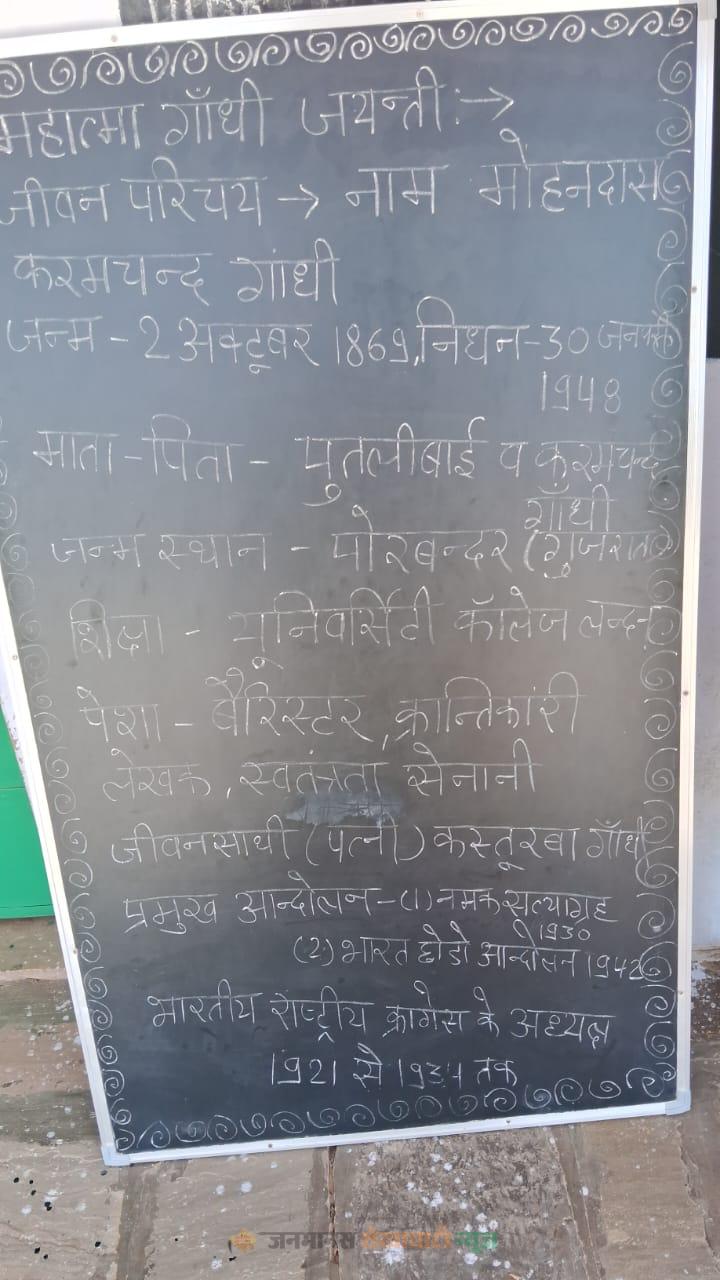 महात्मा गाँधी जयन्ती:→
जीवन परिचय → नाम मोहनदास
करमचन्द गांधी
जन्म - 2 अक्टूबर 1869, निधन - 30
1948
माता - पिता - पुतलीबाई व कुरमचन्द
गाँधी
जन्म स्थान - पोरबन्दर (गुजरात)
शिक्षा - यूनिवर्सिटी कॉलेज लन्दन
पेशा - बैरिस्टर, क्रान्तिकारी
लेखक, स्वतंत्रता सेनानी
जीवनसाथी (पत्नी) कस्तूरबा गाँधी
प्रमुख आन्दोलन - (1) नमक सत्याग्रह
1930
(2) भारत छोडो आन्दोलन 1942
भारतीय राष्ट्रीय क्रागेस के अध्यक्ष
1921 से 1934 तक
जनमानस शेखावाटी न्यूज